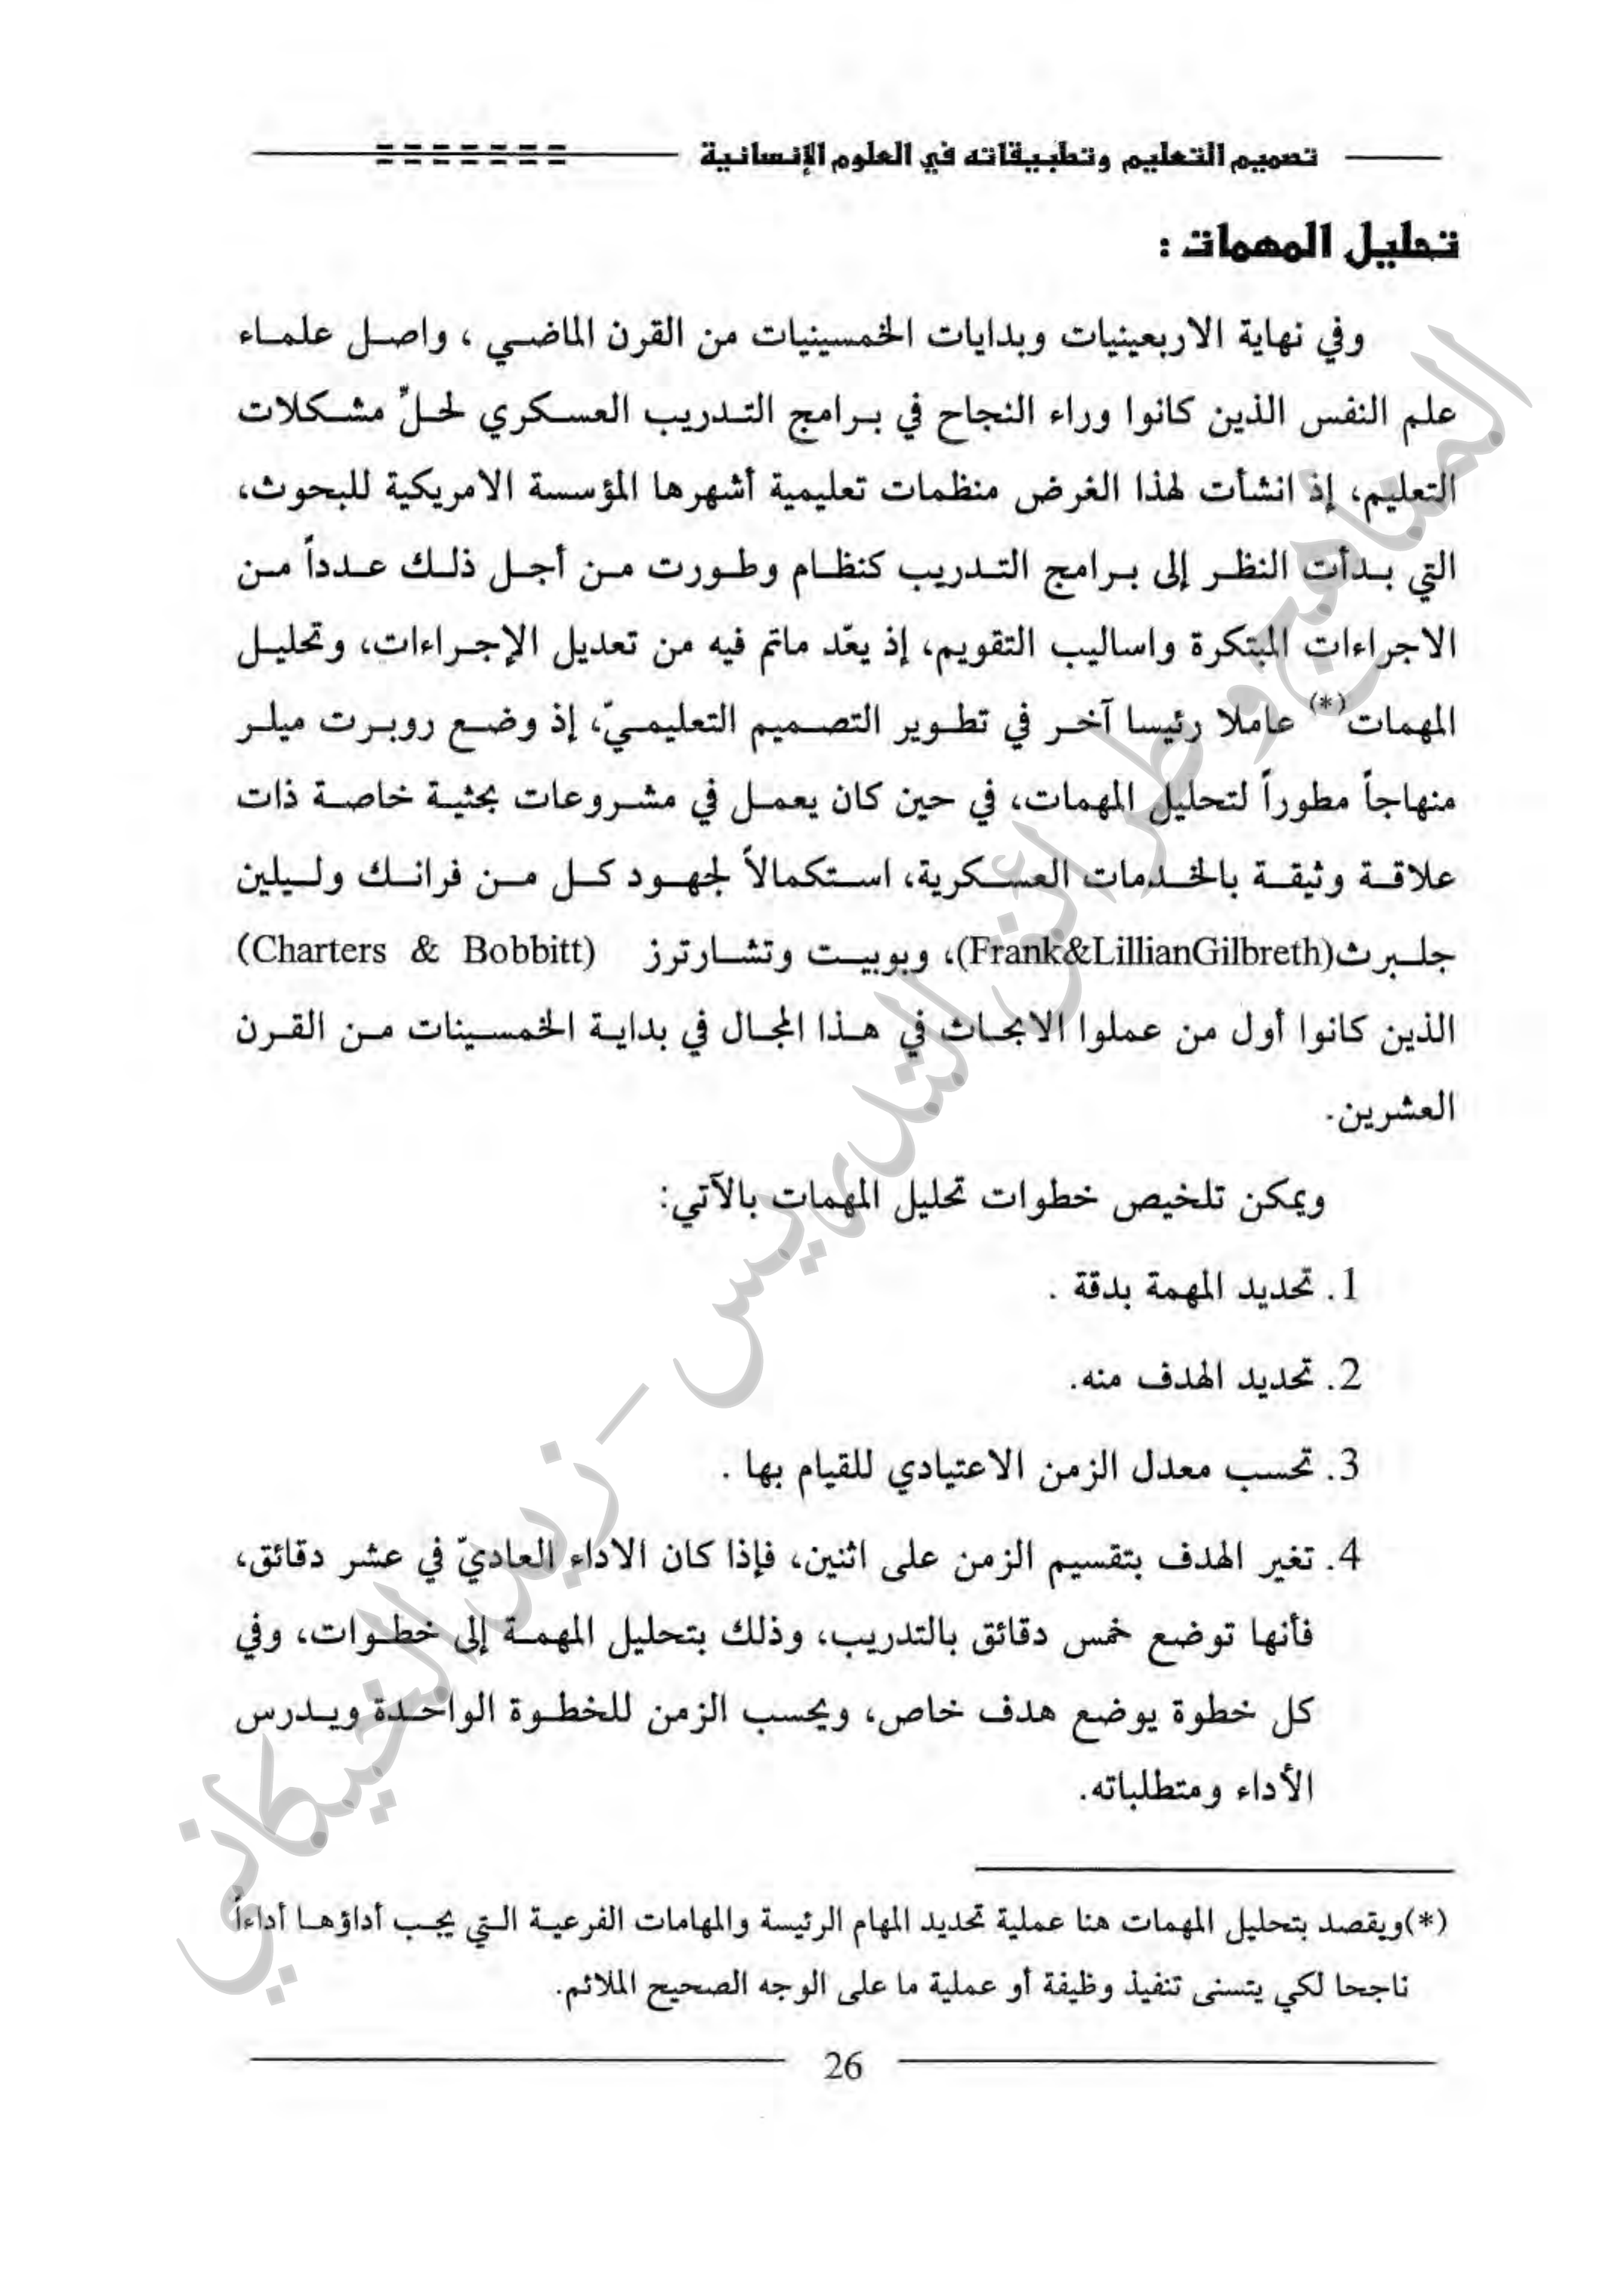 تصميم التعليم وتطبيقاته في العلوم الإنسانية
تحليل المهمات :
وفي نهاية الاربعينيات وبدايات الخمسينيات من القرن الماضي ، واصل علماء
علم النفس الذين كانوا وراء النجاح في برامج التدريب العسكري لحلِّ مشكلات
التعليم، إذ انشأت لهذا الغرض منظمات تعليمية أشهرها المؤسسة الامريكية للبحوث،
التي بدأت النظر إلى برامج التدريب كنظام وطورت من أجل ذلك عدداً من
الاجراءات المبتكرة واساليب التقويم، إذ يعّد ماتم فيه من تعديل الإجراءات، وتحليل
المهمات(*) عاملا رئيسا آخر في تطوير التصميم التعليميّ، إذ وضع روبرت ميلر
منهاجاً مطوراً لتحليل المهمات، في حين كان يعمل في مشروعات بحثية خاصة ذات
علاقة وثيقة بالخدمات العسكرية، استكمالاً لجهود كل من فرانك وليلين
جلبرث(Frank&LillianGilbreth)، وبوبيت وتشارترز (Charters & Bobbitt)
الذين كانوا أول من عملوا الابحاث في هذا المجال في بداية الخمسينات من القرن
العشرين.
ويمكن تلخيص خطوات تحليل المهمات بالآتي:
1. تحديد المهمة بدقة .
2. تحديد الهدف منه.
3. تحسب معدل الزمن الاعتيادي للقيام بها .
4. تغير الهدف بتقسيم الزمن على اثنين، فإذا كان الاداء العاديّ في عشر دقائق،
فأنها توضع خمس دقائق بالتدريب، وذلك بتحليل المهمة إلى خطوات، وفي
كل خطوة يوضع هدف خاص، ويحسب الزمن للخطوة الواحدة ويدرس
الأداء ومتطلباته.
(*)ويقصد بتحليل المهمات هنا عملية تحديد المهام الرئيسة والمهامات الفرعية التي يجب أداؤها أداءاً
ناجحا لكي يتسنى تنفيذ وظيفة أو عملية ما على الوجه الصحيح الملائم.
26
المناهج وطرائق التدريس - زيد الخيكاني